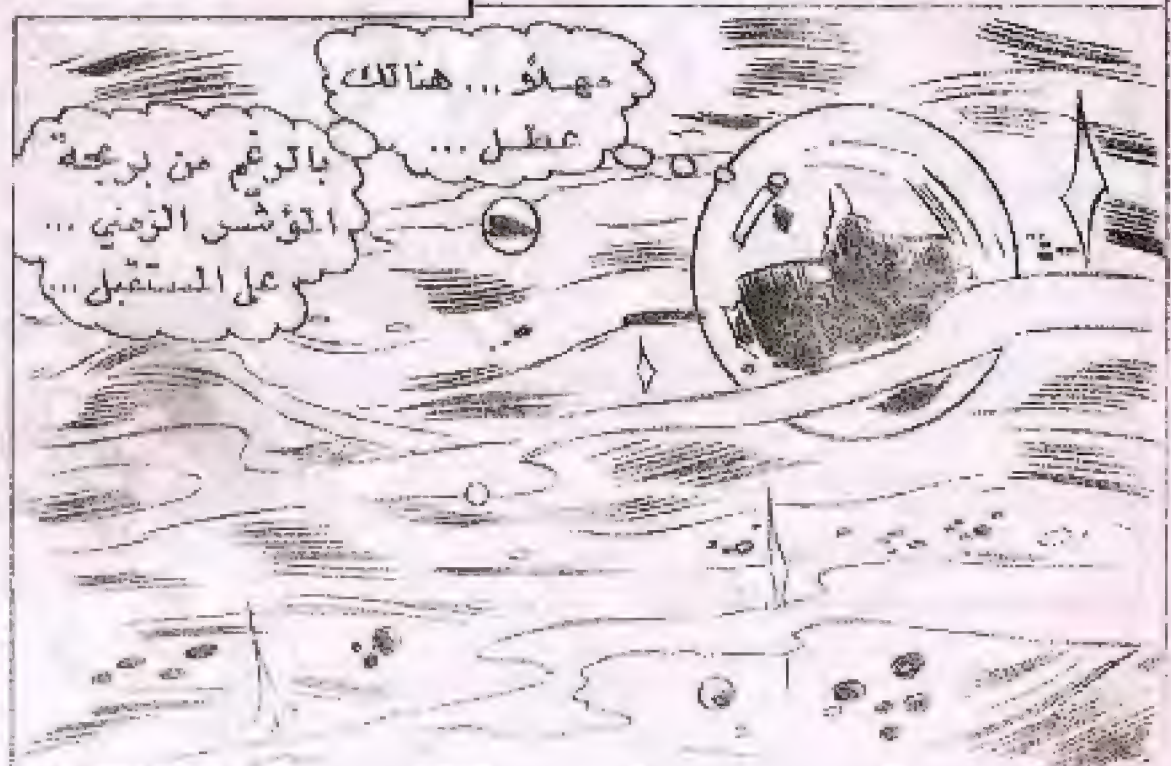 مهلاً... هنالك
عطل...
بالرغم من برمجة
المؤشر الزمني...
على المستقبل...